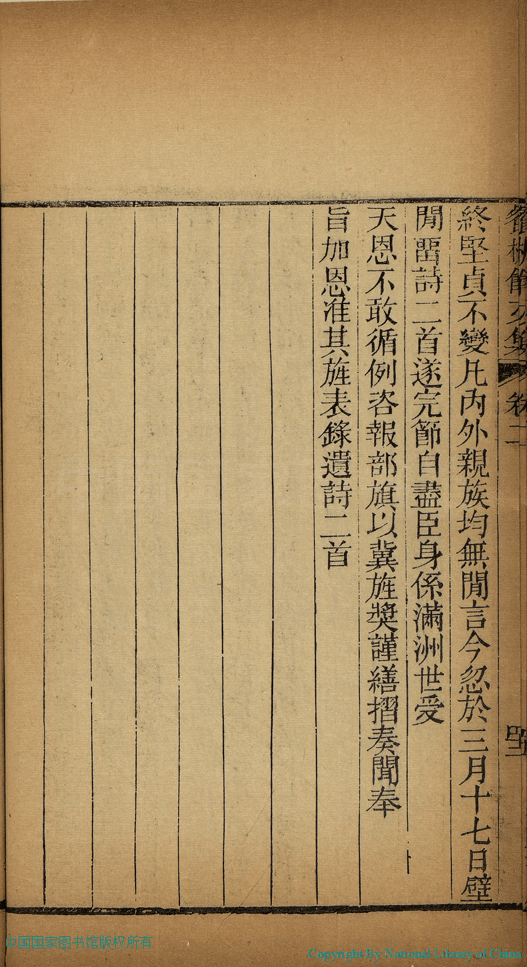 終堅貞不變凡內外親族均無閒言今忽於三月十七日壁
閒畱詩二首遂完節自盡臣身係滿洲世受
天恩不敢循例咨報部旗以冀旌奬謹繕摺奏聞奉
旨加恩准其旌表錄遺詩二首
卷二
中国国家图书馆版权所有
Copyright By National Library of China